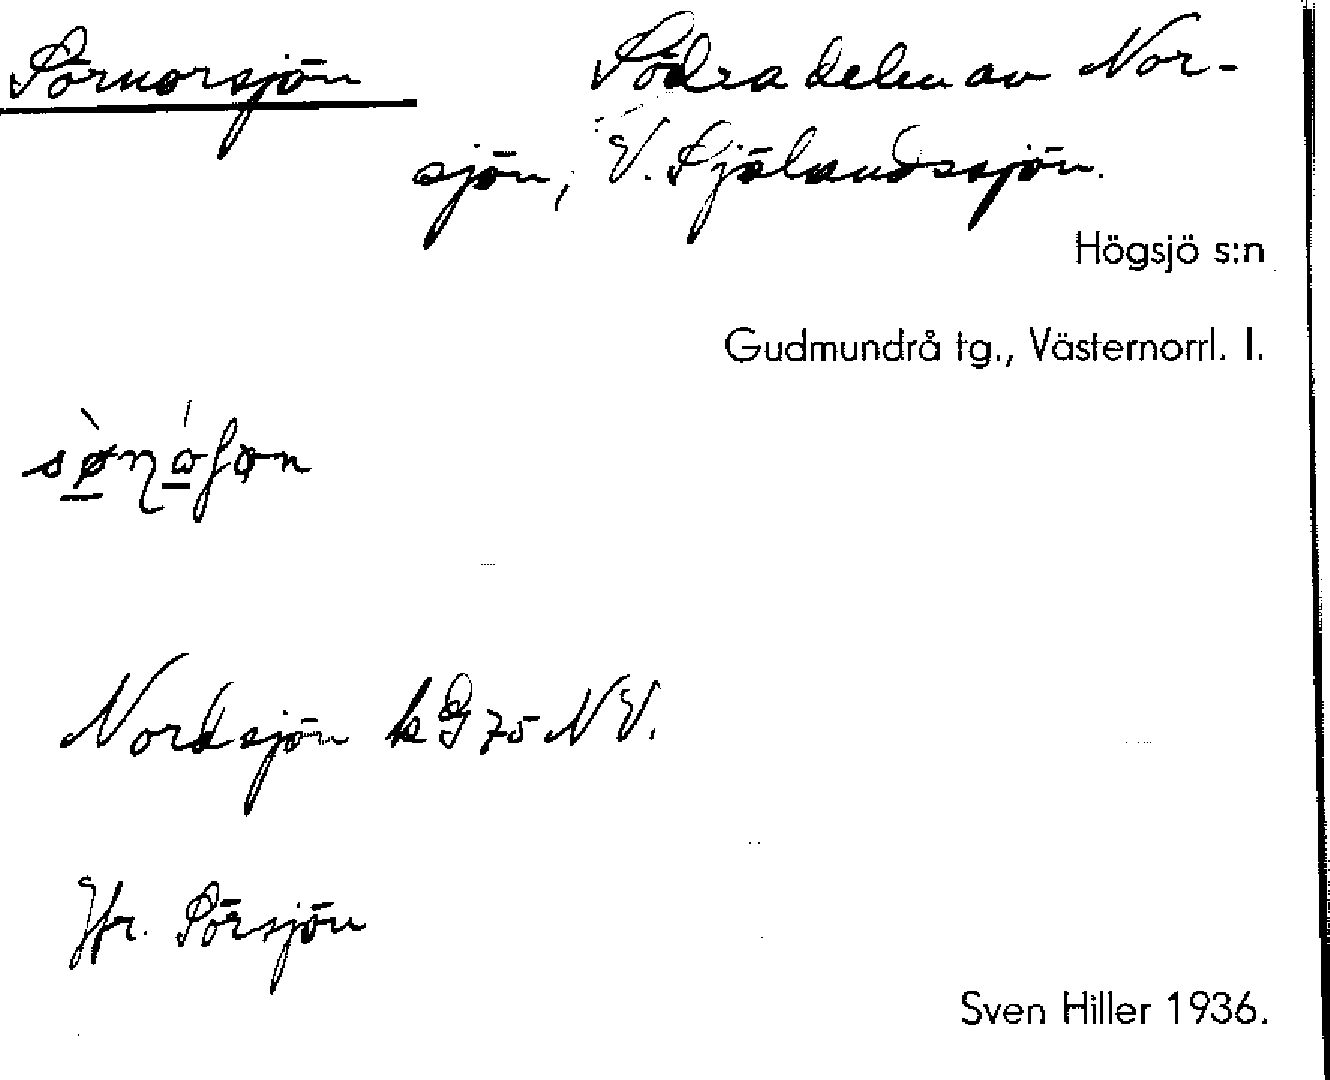 Sörnorsjön Södra delen av Nor-
sjön, V. Själandssjön.
Högsjö s:n
Gudmundrå tg., Västernorrl. l.
Nordsjön k G 75 NV.
Jfr. Sörsjön
Sven Hiller 1936.